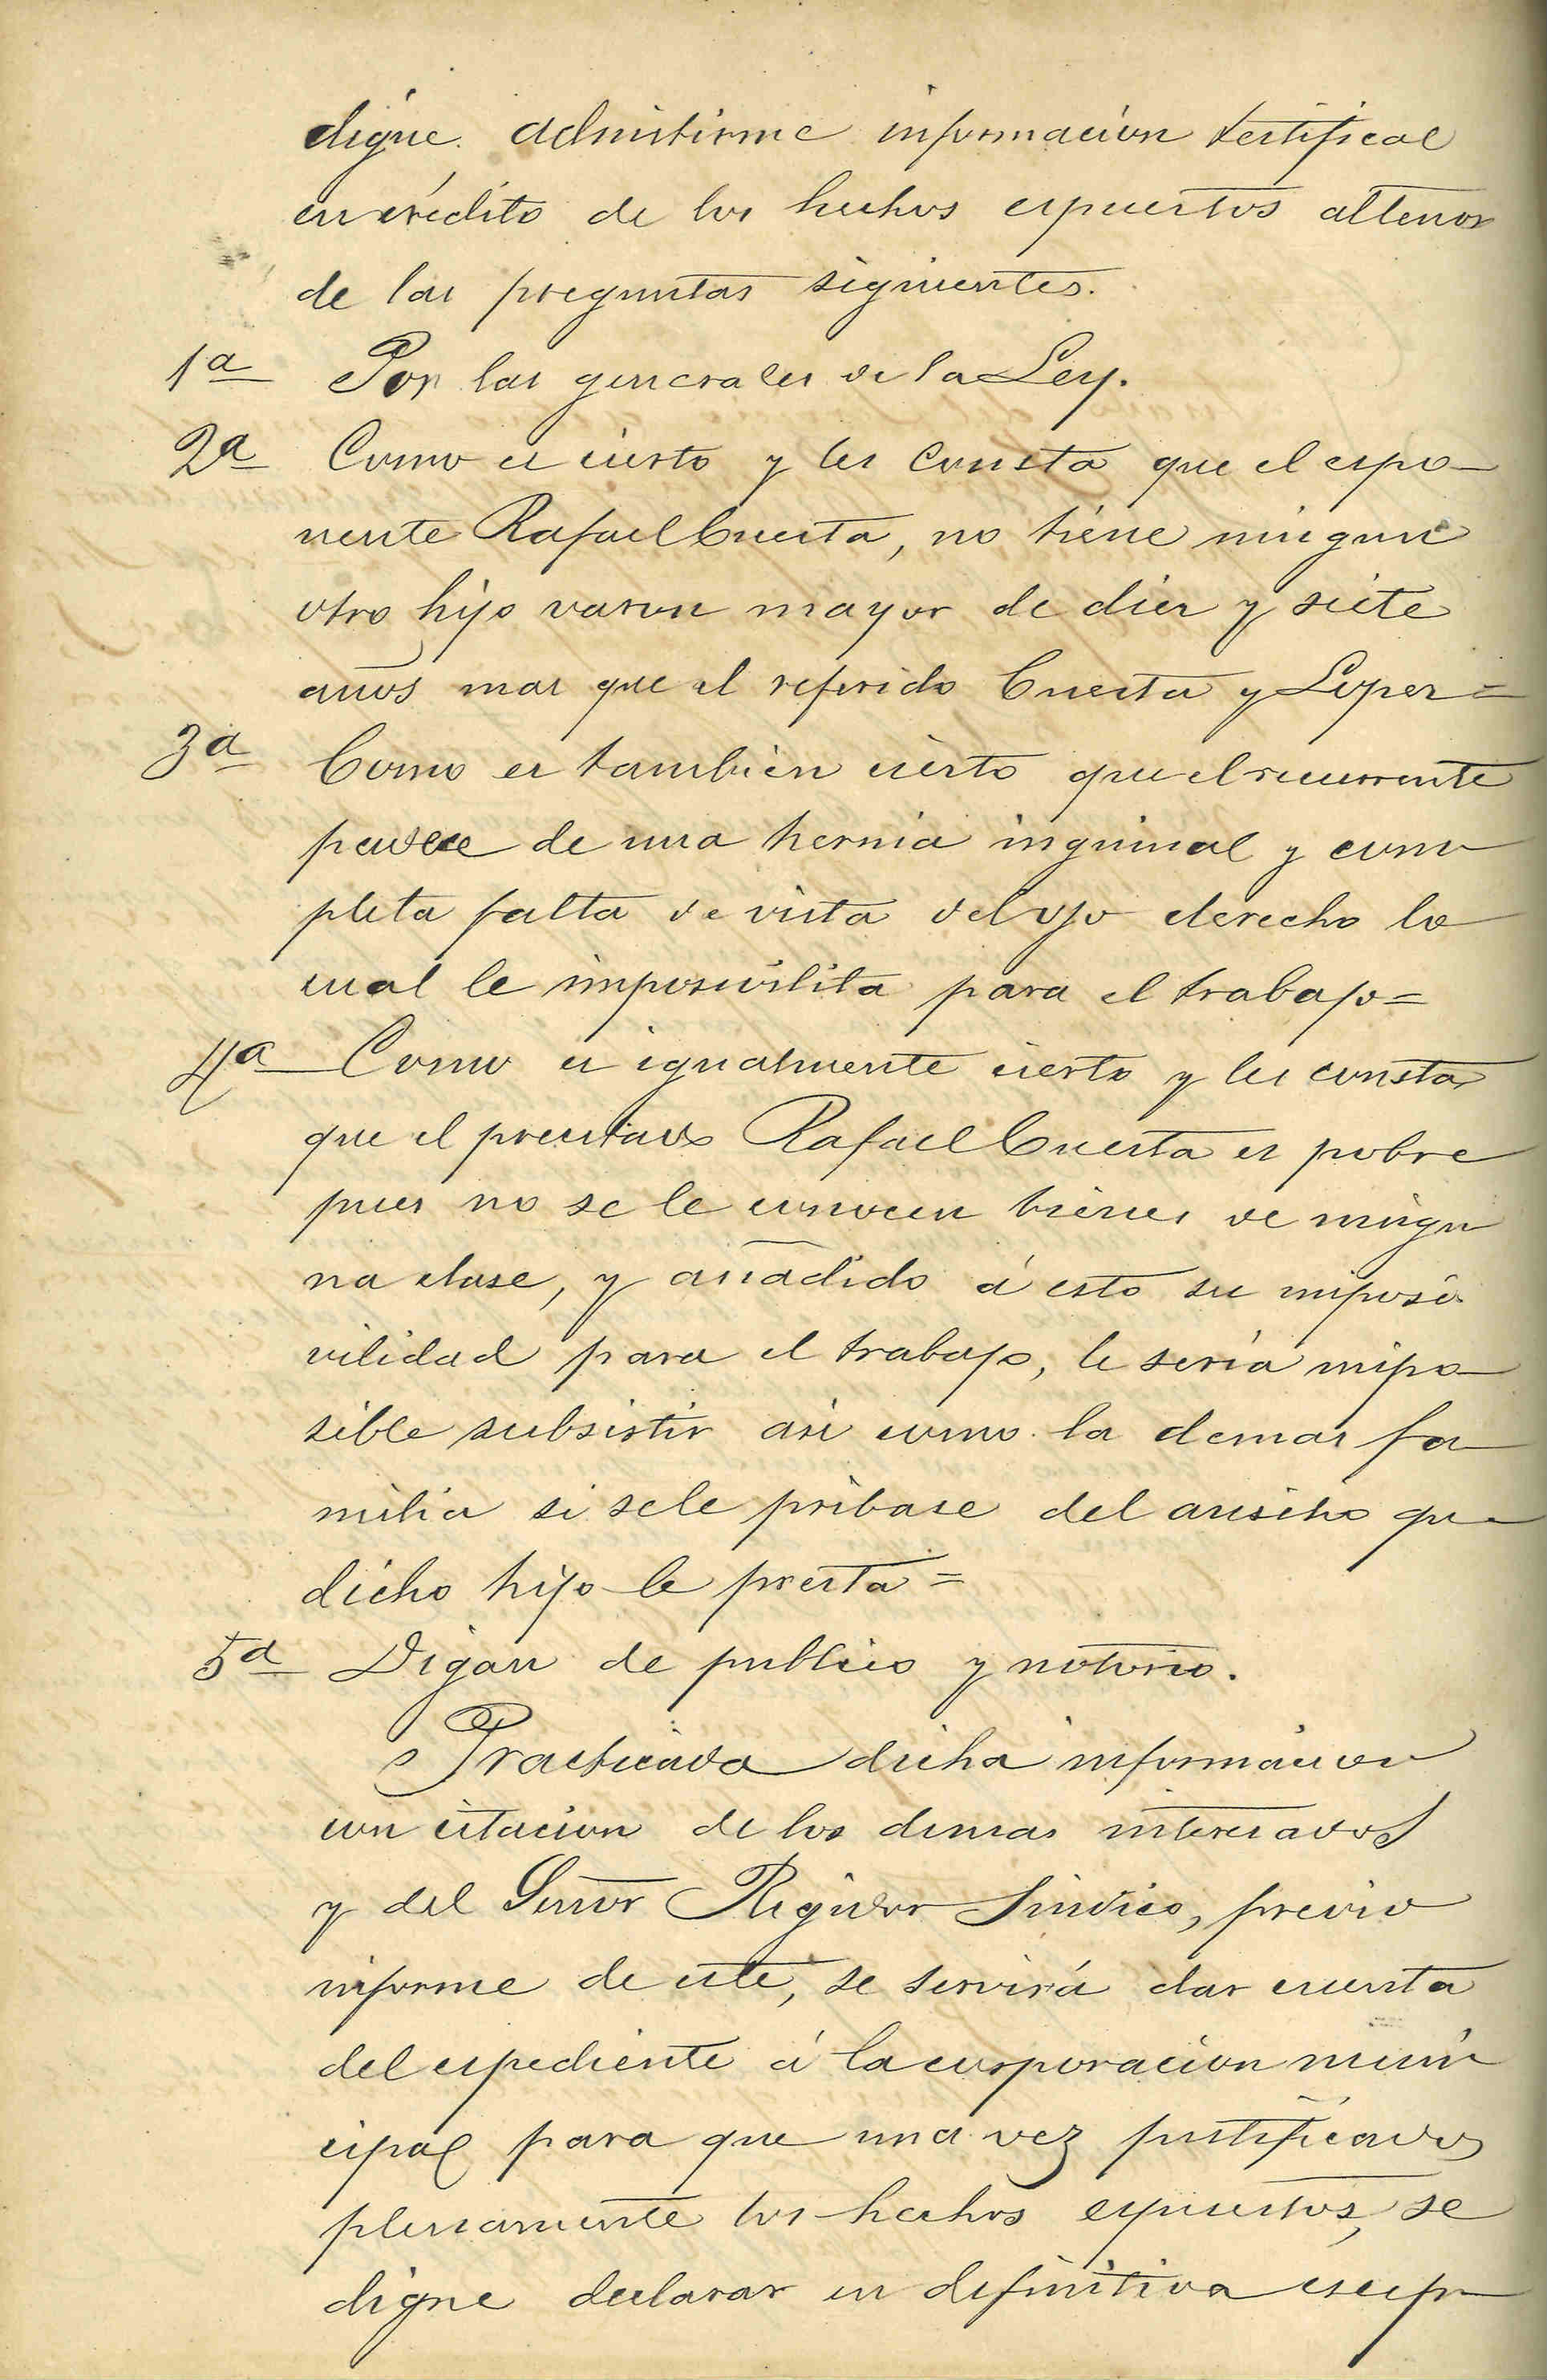 digne admitirme informacion testifical
en crédito de los hechos espuestos al tenor
de las preguntas siguientes.
1ª Por las generales de la Ley.
2ª Como es cierto y les consta que el espo-
nente Rafael Cuesta, no tiene ningun
otro hijo varon mayor de diez y siete
años mas que el referido Cuesta y Lopez=
3ª Como es tambien cierto que el recurrente
padece de una hernia inguinal y com
pleta falta de vista del ojo derecho lo
cual le imposivilita para el trabajo=
4ª Como es igualmente cierto y les consta
que el precitado Rafael Cuesta es pobre
pues no se le conocen bienes de ningu
na clase, y añadido á esto su imposi
vilidad para el trabajo, le sería impo-
sible subsistir asi como la demas fa-
milia si se le pribase del ausilio que
dicho hijo le presta=
5ª Digan de publico y notorio.
Practicada dicha informacion
con citacion de los demas interesados
y del Señor Regidor Sindico, previo
informe de este, se servirá dar cuenta
del espediente á la corporacion muni
cipal para que una vez justificados
plenamente los hechos espuestos, se
digne declarar en definitiva escep-